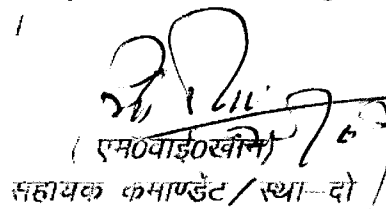 ।
( एम०वाई०खान)
सहायक कमाण्डेंट / स्था-दो